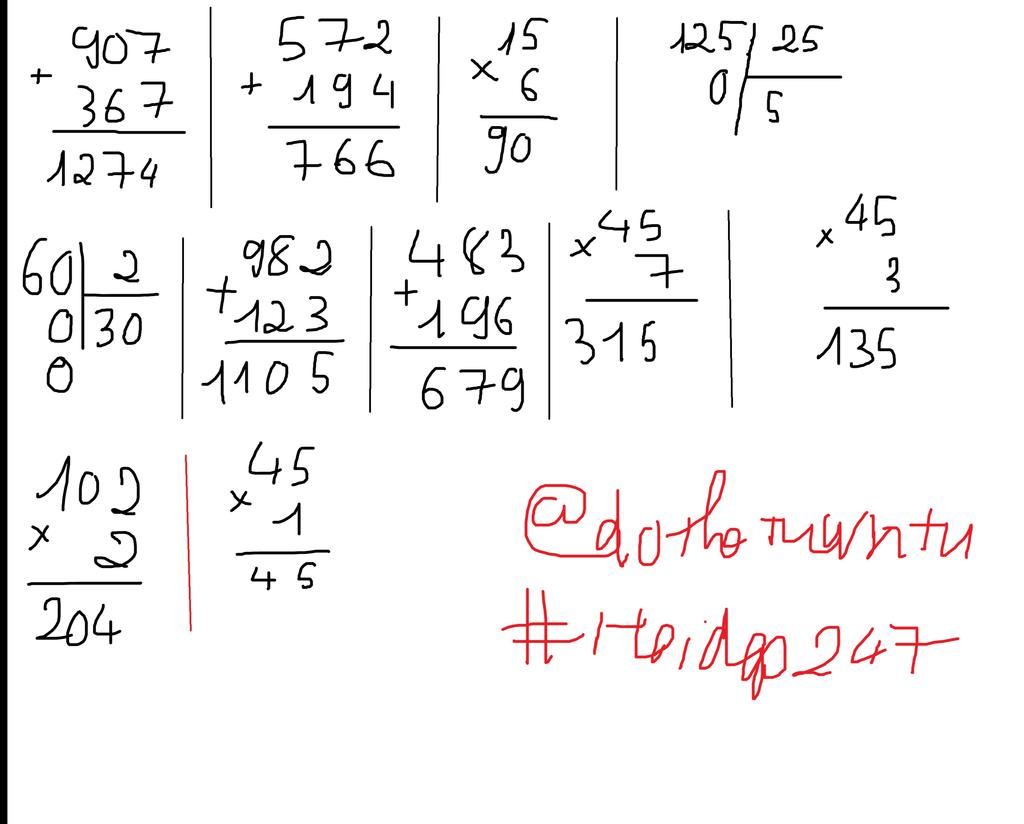 907 + 367 1274
572 + 194 766
15 × 6 90
125 25 0 5
60 2 0 30 0
982 + 123 1105
483 + 196 679
45 × 7 315
45 × 3 135
102 × 2 204
45 × 1 45